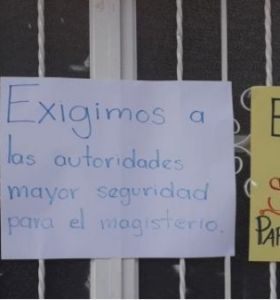 Exigimos a
las autoridades
mayor seguridad
para el magisterio.